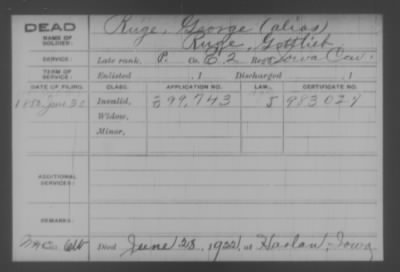 DEAD
NAME OF SOLDIER:
Ruge, George (alias)
Ruge, Gottlieb
SERVICE:
Late rank, P. Co. E, 2 Reg't Iowa Cav.
TERM OF SERVICE:
Enlisted , 1 Discharged , 1
DATE OF FILING. CLASS. APPLICATION NO. LAW. CERTIFICATE NO.
Invalid, 399,743 983028
Widow,
Minor,
ADDITIONAL SERVICES:
REMARKS:
Died June 28, 1922, at Harlan, Iowa